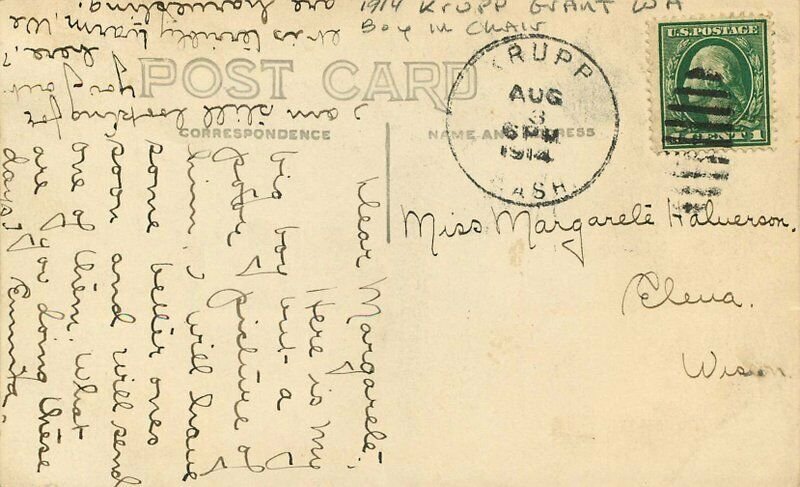 1914 KRUPP GRANT WA
BOY IN CHAIR
POST CARD
CORRESPONDENCE
NAME AND ADDRESS
KRUPP
AUG
3
6 PM
1914
WASH.
U.S. POSTAGE
1 CENT 1
Miss Margarete Halverson.
Eleva.
Wiscon
Dear Margarete,
Here is my
big boy but a
poor picture of
him. I will have
some better ones
soon and will send
one of them. What
are you doing these
days? Emma.
I am still looking for
you out
here?
It is terribly warm. We
are harvesting.